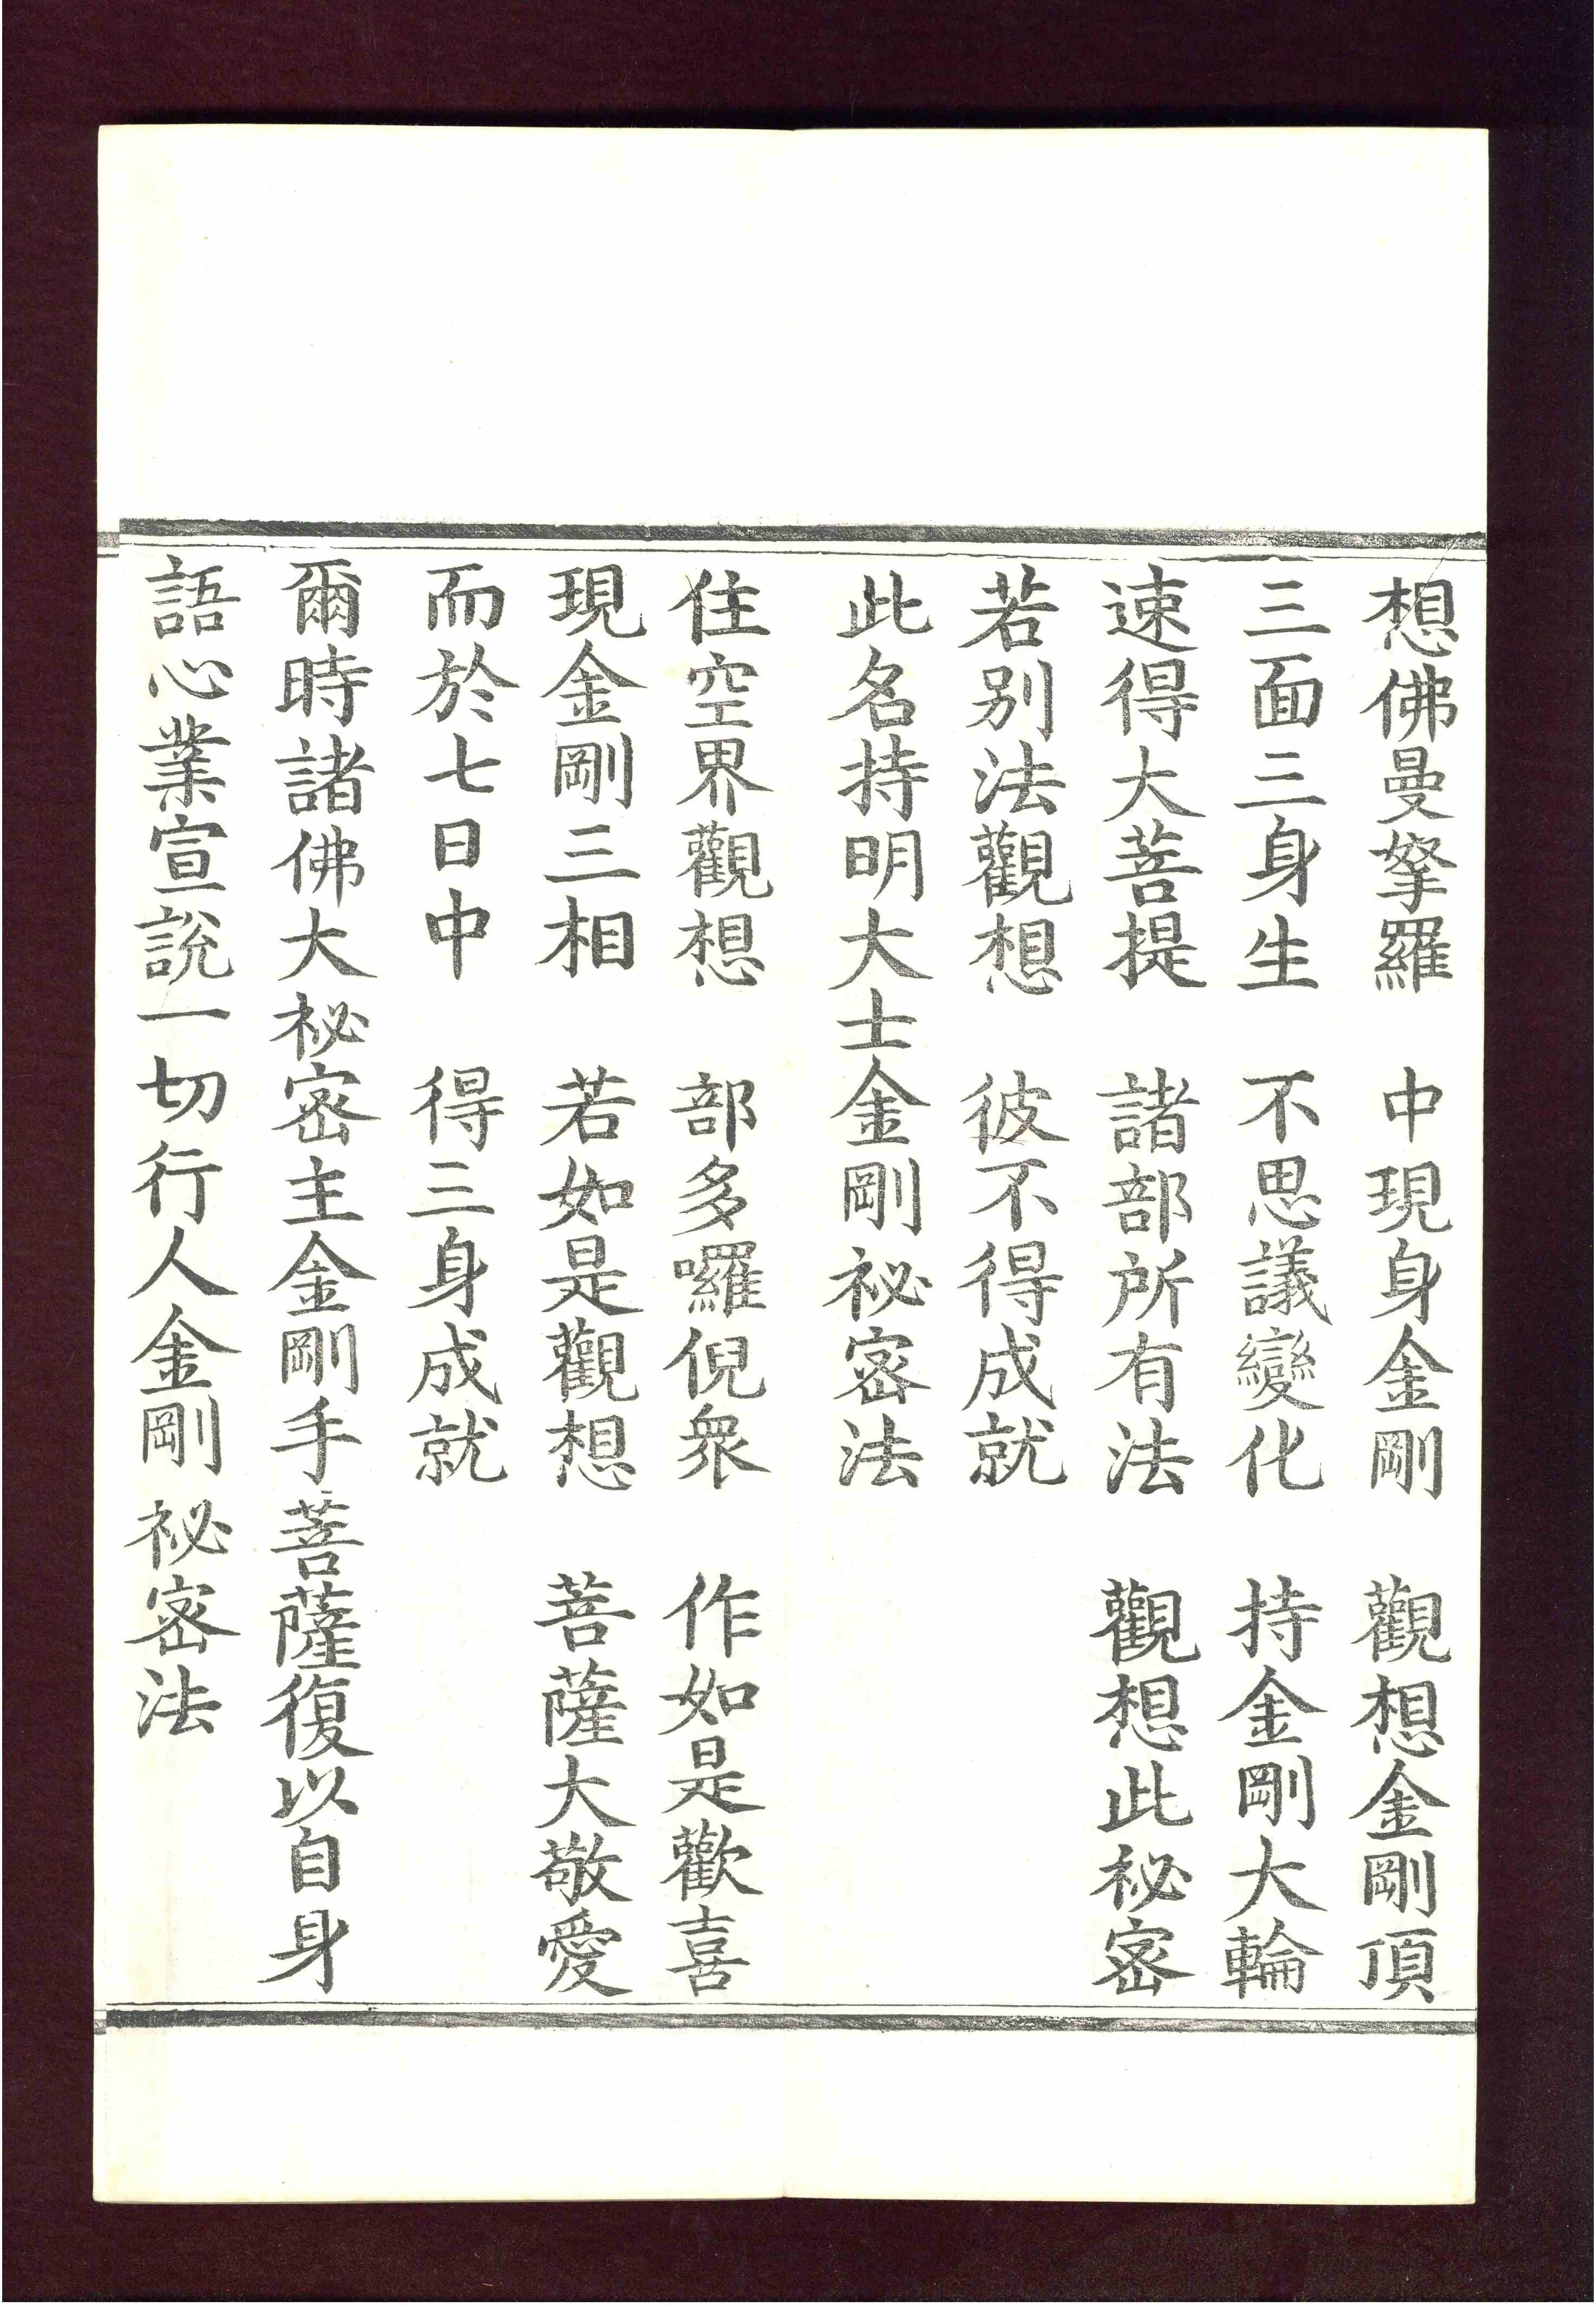 想佛曼拏羅　中現身金剛　觀想金剛頂
三面三身生　不思議變化　持金剛大輪
速得大菩提　諸部所有法　觀想此祕密
若别法觀想　彼不得成就
此名持明大士金剛祕密法
住空界觀想　部多囉倪衆　作如是歡喜
現金剛三相　若如是觀想　菩薩大敬愛
而於七日中　得三身成就
爾時諸佛大祕密主金剛手菩薩復以自身
語心業宣說一切行人金剛祕密法